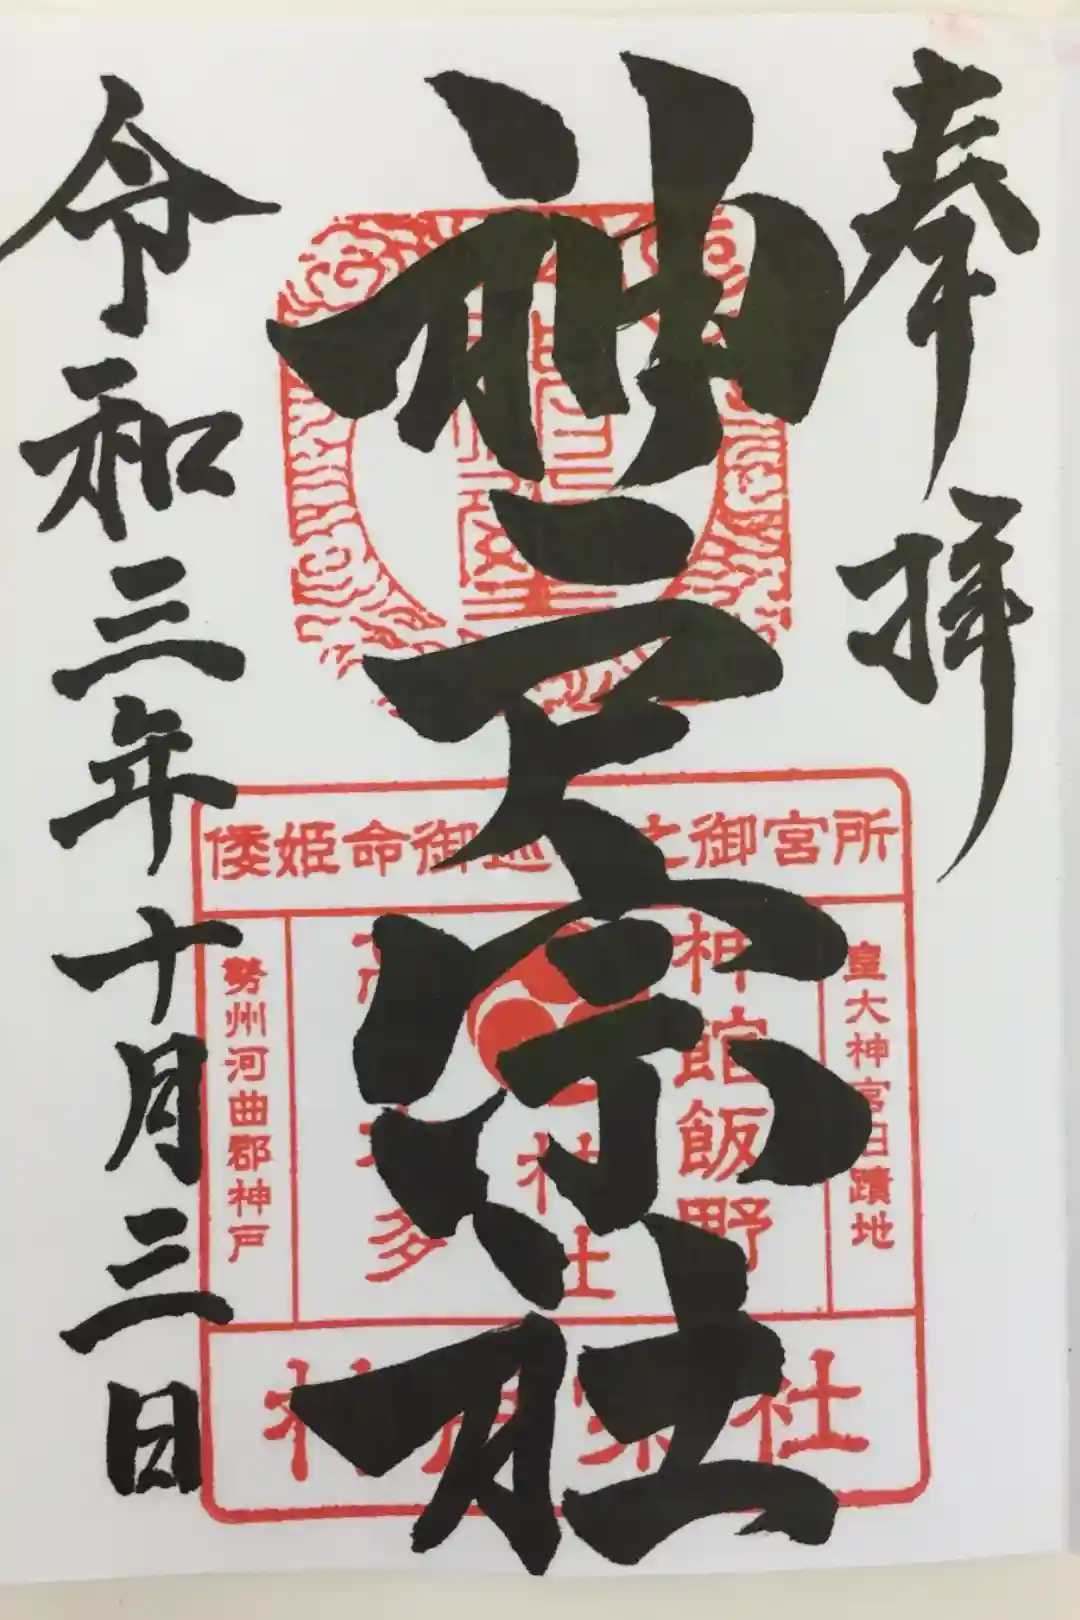 奉拝
神戸宗社
令和三年十月三日
倭姫命御巡之御宮所
皇大神宮旧蹟地
神館飯野
高市本多
神社
勢州河曲郡神戸
神戸宗社